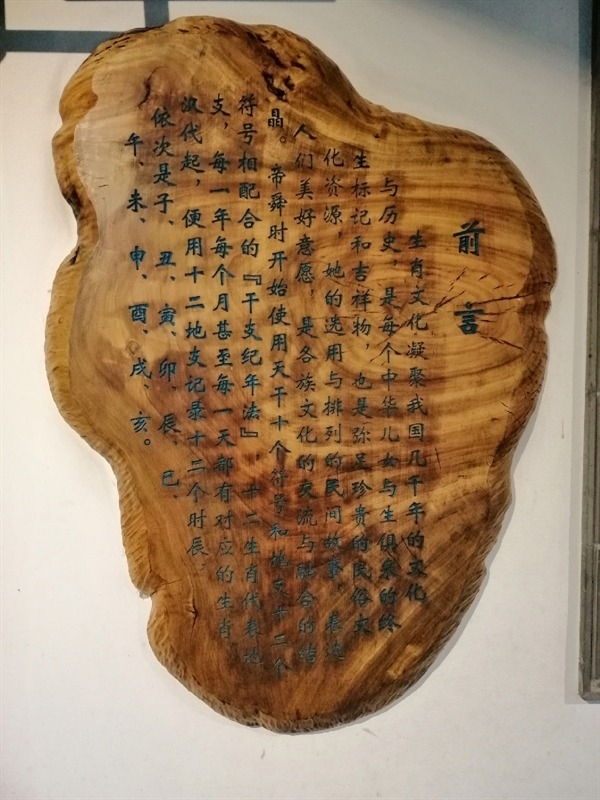 前言
生肖文化凝聚我国几千年的文化
与历史，是每个中华儿女与生俱来的终
生标记和吉祥物，也是弥足珍贵的民俗文
化资源，她的选用与排列的民间故事，表达
人们美好意愿，是各族文化的交流与融合的结
晶。帝舜时开始使用天干十个符号和地支十二个
符号相配合的『干支纪年法』，十二生肖代表地
支，每一年每个月甚至每一天都有对应的生肖。
汉代起，便用十二地支记录十二个时辰，
依次是子、丑、寅、卯、辰、巳、
午、未、申、酉、戌、亥。